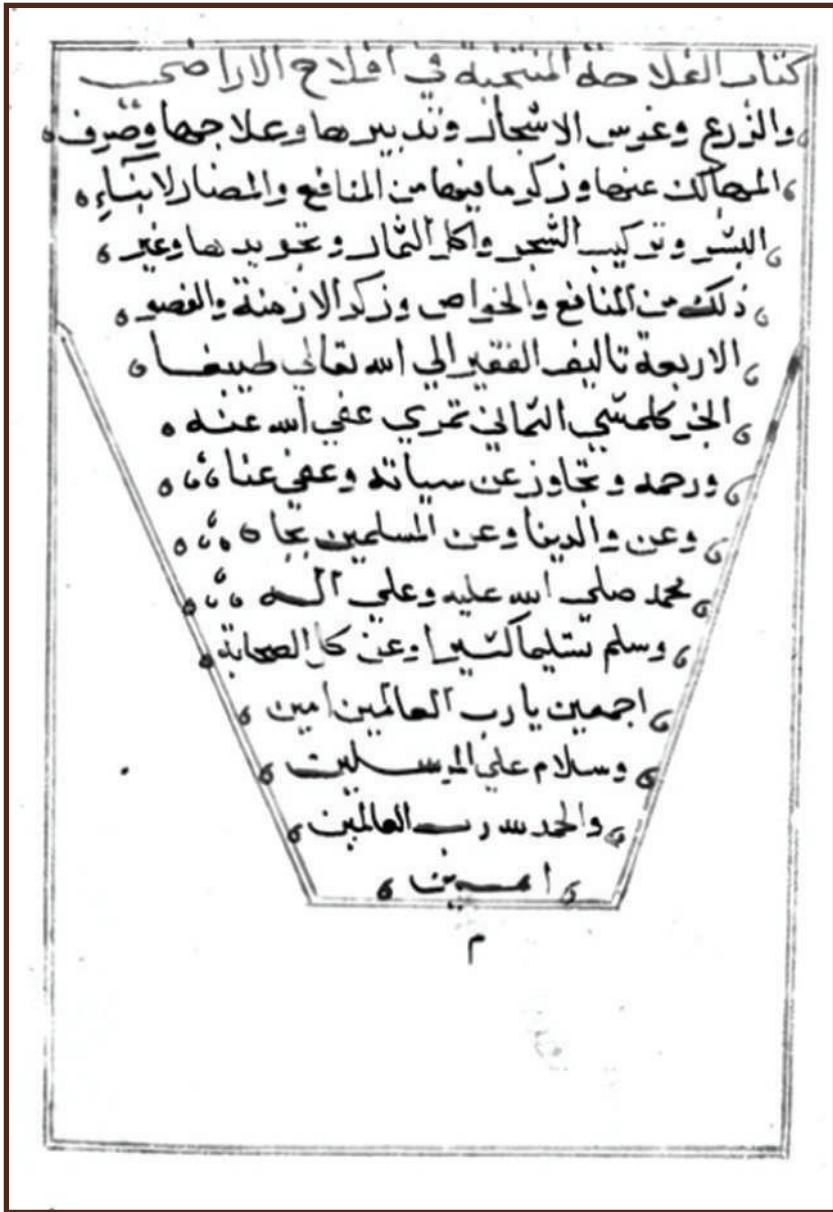 كتاب الفلاحة المنتخبة في افلاح الاراضي
والزرع وغرس الاشجار وتدبيرها وعلاجها وصرف
المهالك عنها وذكر ما فيها من المنافع والمضار لابناء
البشر وتركيب الشجر واكل الثمار وتجويدها وغير
ذلك من المنافع والخواص وذكر الازمنة والفصو
الاربعة تاليف الفقير الي الله تعالي طيبغا
الجركلمشي التمان تمري عفي الله عنه
ورحمه وتجاوز عن سياته وعفي عنا
وعن والدينا وعن المسلمين بجاه
محمد صلي الله عليه وعلي اله
وسلم تسليما كثيرا وعن كل الصحابة
اجمعين يا رب العالمين امين
وسلام علي المرسلين
والحمد لله رب العالمين
امين
م